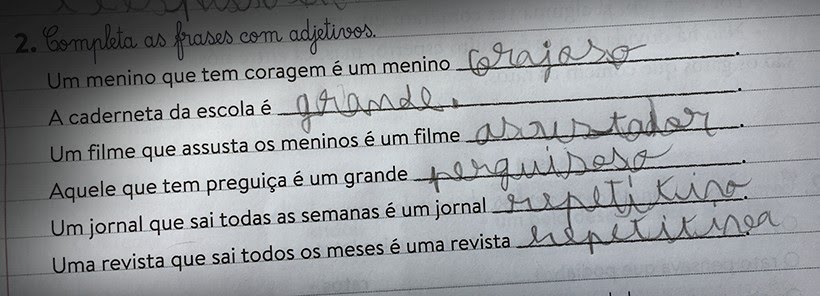 2. Completa as frases com adjetivos.
Um menino que tem coragem é um menino corajoso.
A caderneta da escola é grande.
Um filme que assusta os meninos é um filme assustador.
Aquele que tem preguiça é um grande perguisoso.
Um jornal que sai todas as semanas é um jornal repetitivo.
Uma revista que sai todos os meses é uma revista repetitiva.